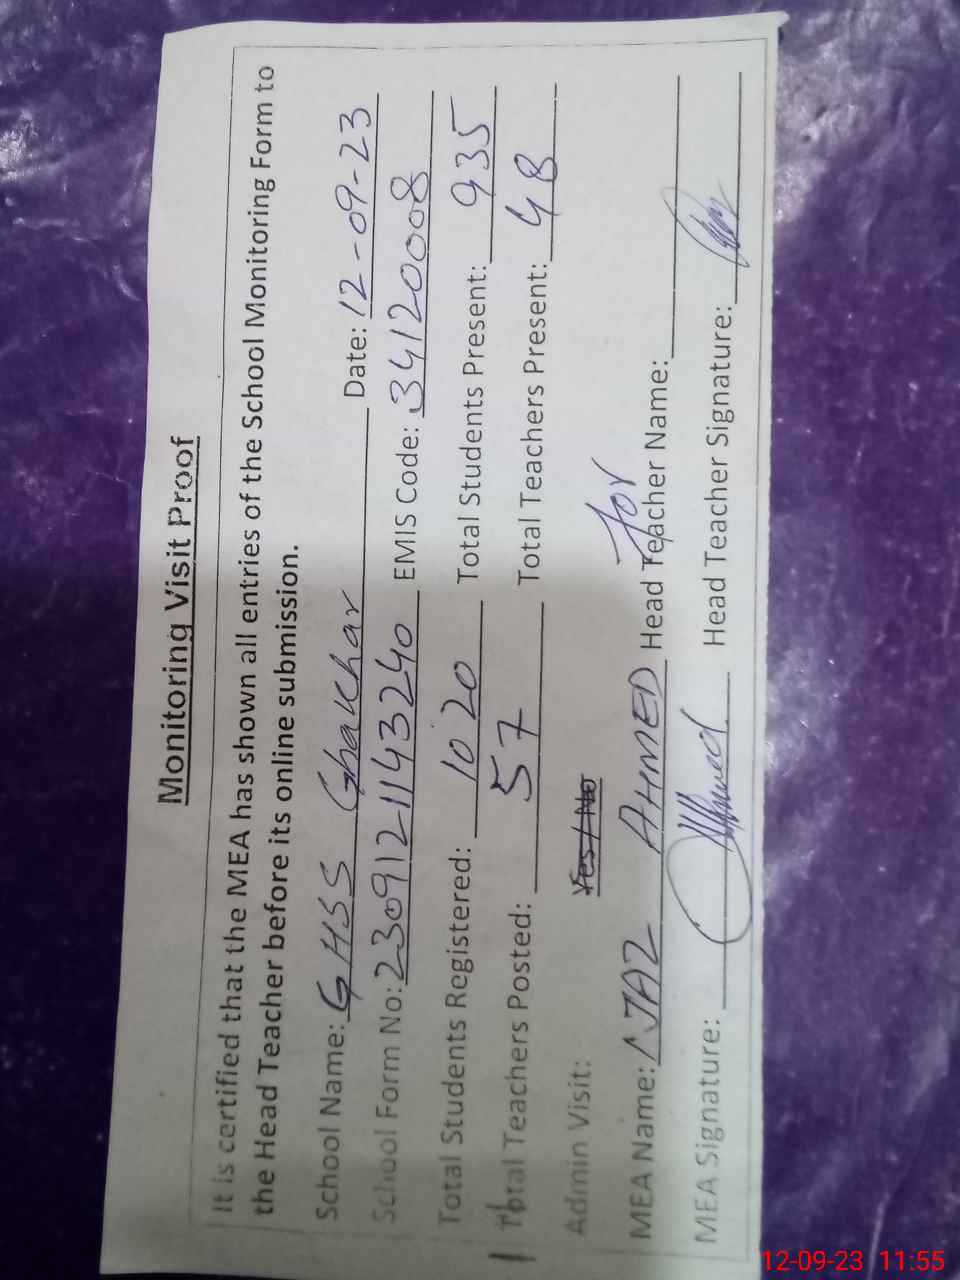 Monitoring Visit Proof
It is certified that the MEA has shown all entries of the School Monitoring Form to
the Head Teacher before its online submission.
School Name: GHSS Ghakhar Date: 12-09-23
School Form No: 2309121143240 EMIS Code: 34120008
Total Students Registered: 1020 Total Students Present: 935
Total Teachers Posted: 57 Total Teachers Present: 48
Admin Visit: Yes / No
for
MEA Name: IJAZ AHMED Head Teacher Name:
MEA Signature: Head Teacher Signature:
12-09-23 11:55